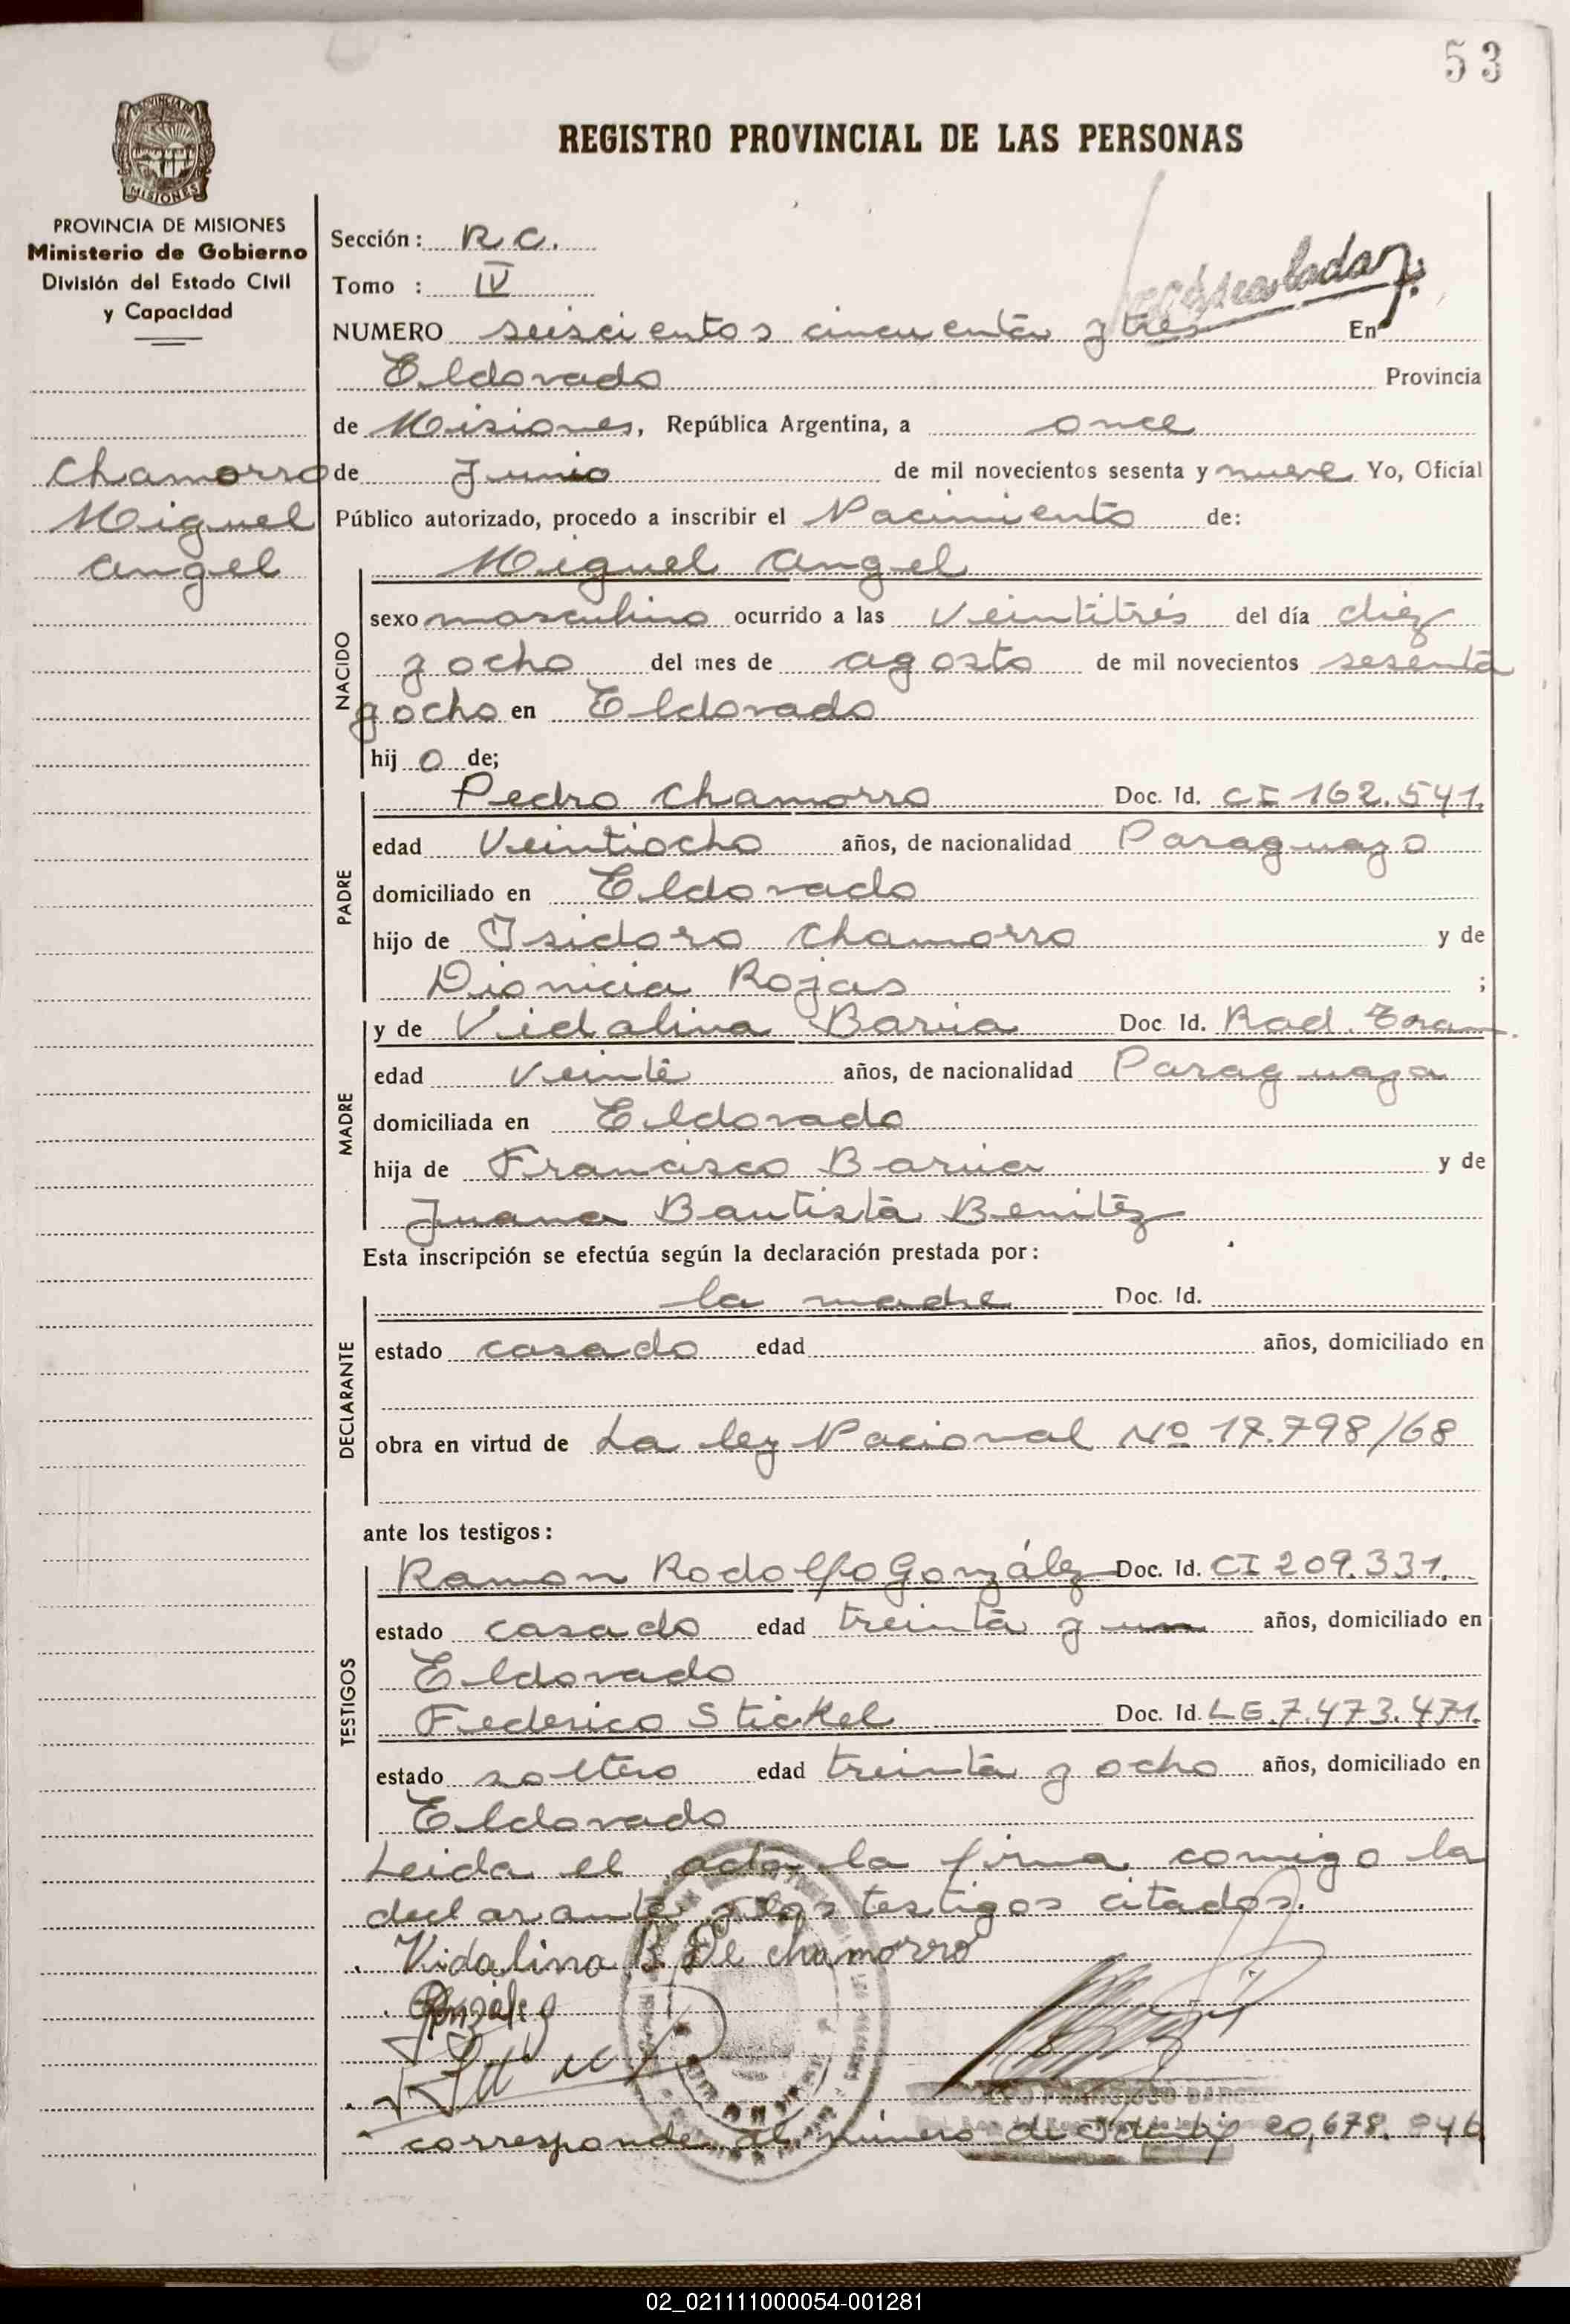 53
REGISTRO PROVINCIAL DE LAS PERSONAS
PROVINCIA DE MISIONES
Ministerio de Gobierno
División del Estado Civil
y Capacidad
Chamorro
Miguel
Angel
Sección: R C.
Tomo : IV
NUMERO seiscientos cincuenta y tres En
Eldorado Provincia
de Misiones, República Argentina, a once
de Junio de mil novecientos sesenta y nueve Yo, Oficial
Público autorizado, procedo a inscribir el Nacimiento de:
Miguel Angel
NACIDO
sexo masculino ocurrido a las veintitrés del día diez
y ocho del mes de agosto de mil novecientos sesenta
y ocho en Eldorado
hij o de;
PADRE
Pedro Chamorro Doc. Id. CI 162.541.
edad Veintiocho años, de nacionalidad Paraguayo
domiciliado en Eldorado
hijo de Isidoro Chamorro y de
Dionicia Rojas ;
MADRE
y de Vidalina Barúa Doc Id. Rad. Tram.
edad veinte años, de nacionalidad Paraguaya
domiciliada en Eldorado
hija de Francisco Barúa y de
Juana Bautista Benitez
Esta inscripción se efectúa según la declaración prestada por:
DECLARANTE
la madre Doc. Id.
estado casado edad años, domiciliado en
obra en virtud de La ley Nacional Nº 17.798/68
ante los testigos:
TESTIGOS
Ramon Rodolfo González Doc. Id. CI 209.331.
estado casado edad treinta y un años, domiciliado en
Eldorado
Federico Stickel Doc. Id. LE.7.473.471.
estado soltero edad treinta y ocho años, domiciliado en
Eldorado
Leida el acta la firma comigo la
declarante y los testigos citados.
Vidalina B. De chamorro
González
corresponde al número de 20,678.046
02_021111000054-001281